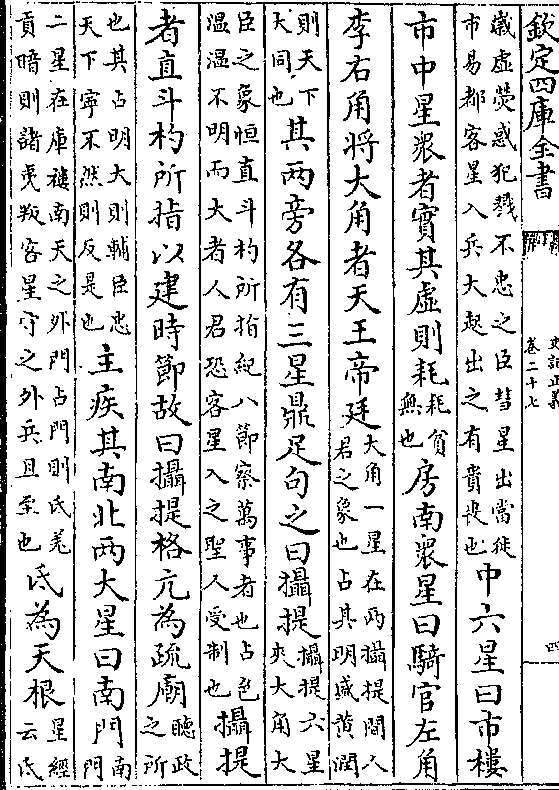 欽定四庫全書
史記正義
卷二十七
四
歲虛熒惑犯戮不忠之臣彗星出當徙
市易都客星入兵大起出之有貴喪也
中六星曰市樓
市中星衆者實其虛則耗
耗貧
無也
房南衆星曰騎官左角
李右角將大角者天王帝廷
大角一星在兩攝提間人
君之象也占其明盛黃潤
則天下
大同也
其两旁各有三星鼎足句之曰攝提
攝提六星
夾大角大
臣之象恒直斗杓所指紀八節察萬事者也占色
温温不明而大者人君恐客星入之聖人受制也
攝提
者直斗杓所指以建時節故曰攝提格亢為疏廟
聽政
之所
也其占明大則輔臣忠
天下寧不然則反是也
主疾其南北两大星曰南門
南
門
二星在庫樓南天之外門占明則氐羌
貢暗則諸夷叛客星守之外兵且至也
氐為天根
星經
云氐